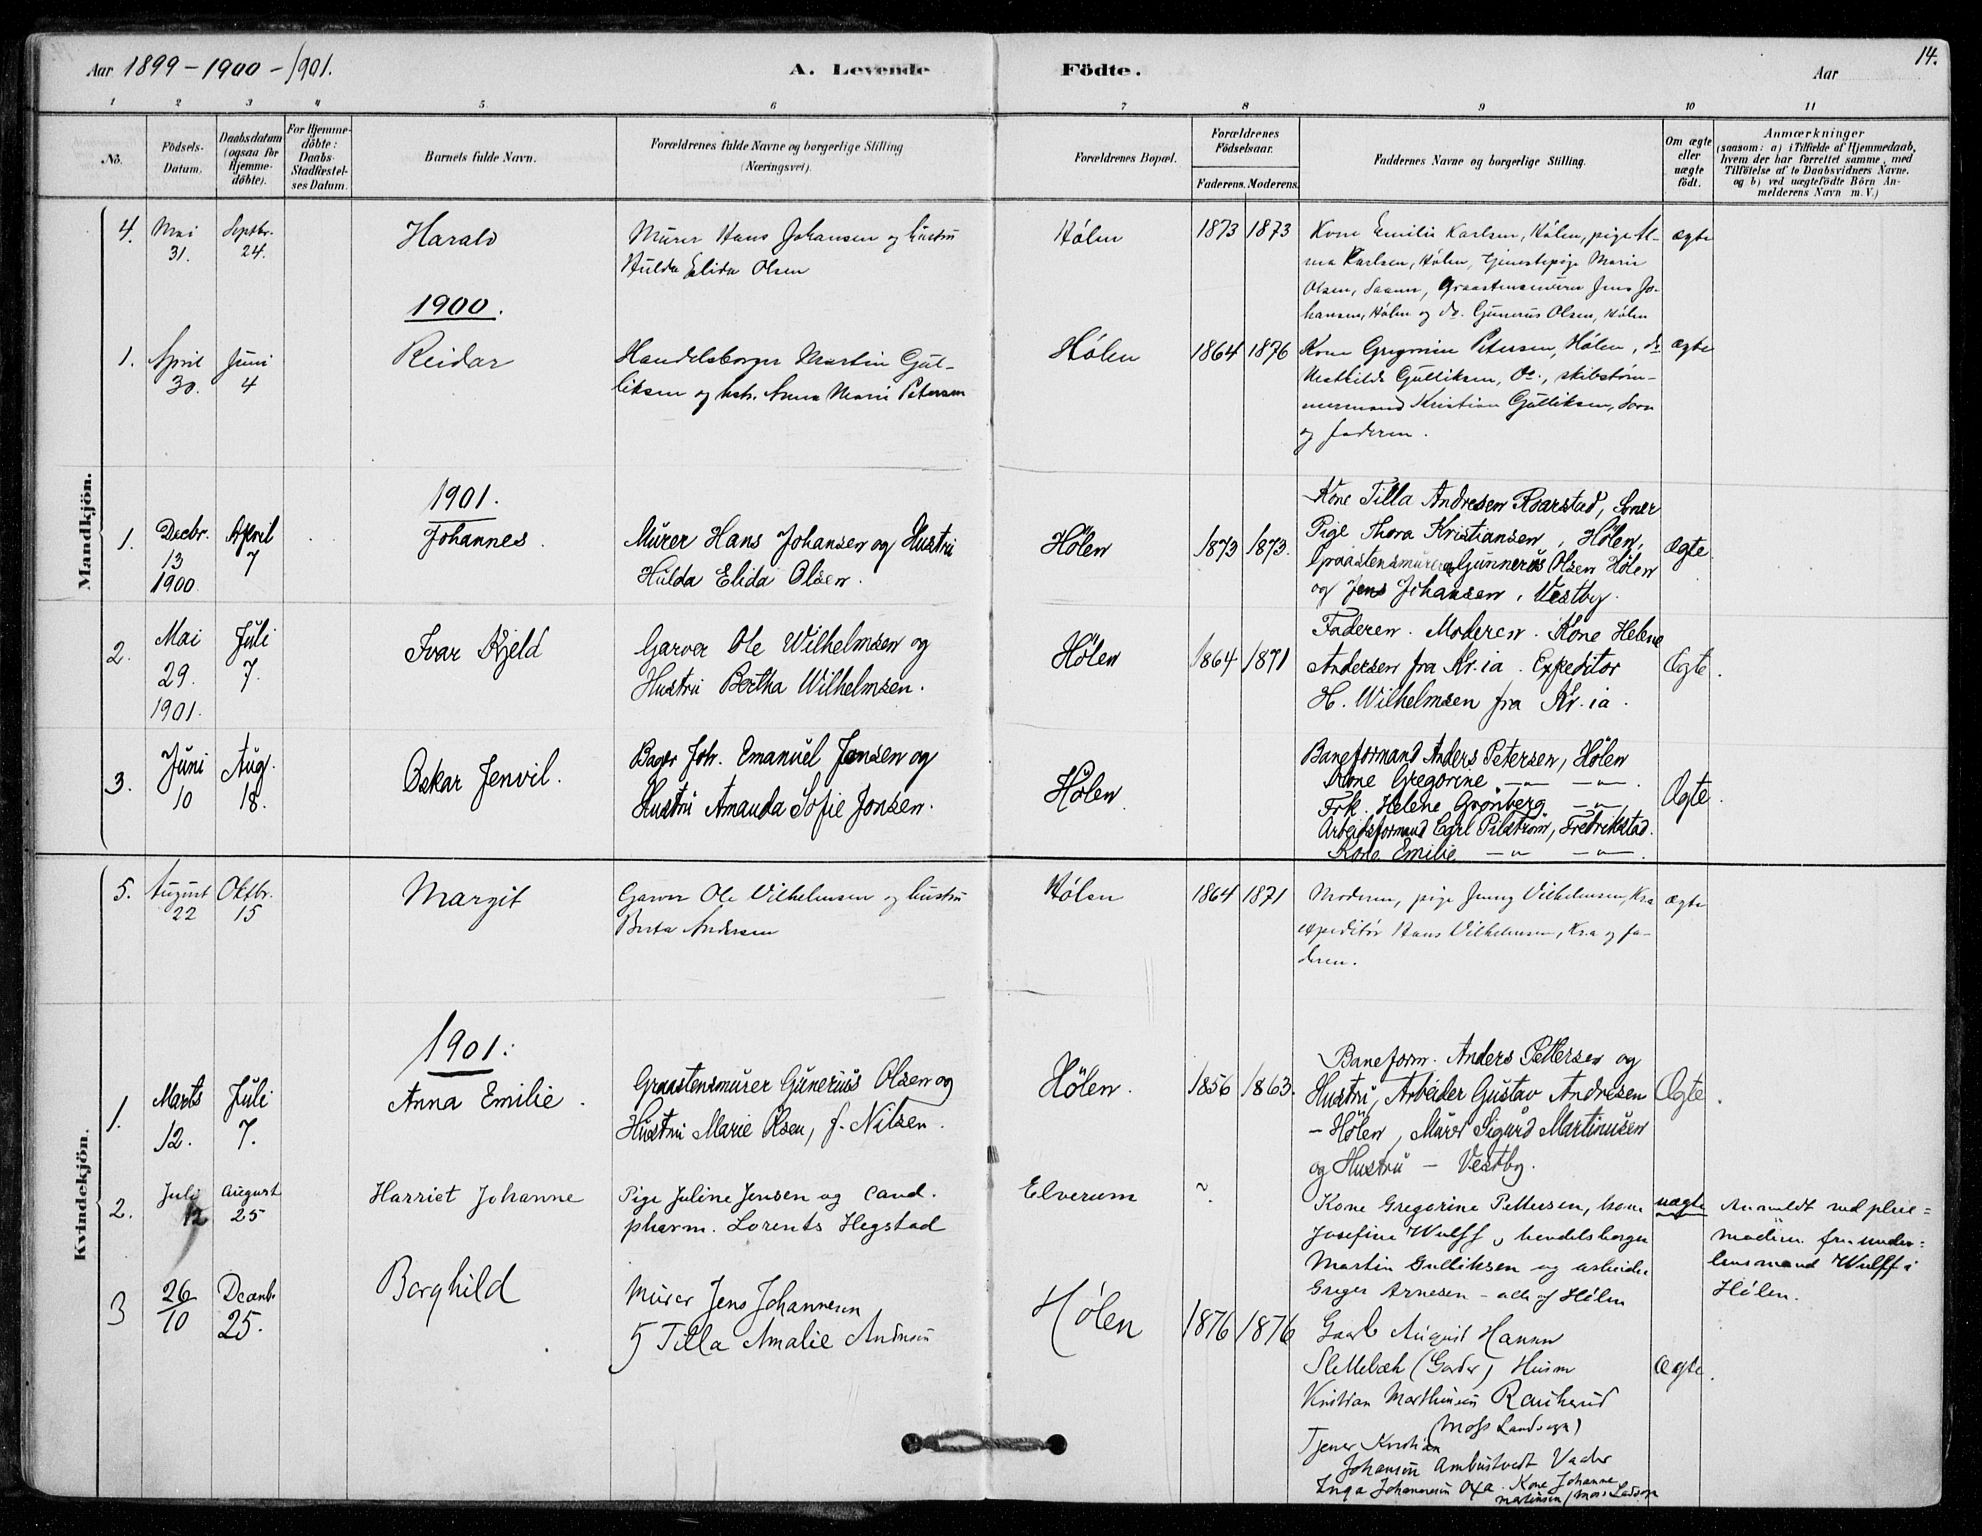 Aar 1899 - 1900 - 1901.
A. Levende Födte.
Aar
14.
1 2 3 4 5 6 7 8 9 10 11
No.
Födsels-Datum.
Daabsdatum (ogsaa for Hjemme-döbte).
For Hjemme-döbte: Daabs-Stadfæstel-ses Datum.
Barnets fulde Navn.
Forældrenes fulde Navne og borgerlige Stilling (Næringsvei).
Forældrenes Bopæl.
Forældrenes Födselsaar.
Faderens. Moderens.
Faddernes Navne og borgerlige Stilling.
Om ægte eller uægte födt.
Anmærkninger
(saasom: a) i Tilfælde af Hjemmedaab,
hvem der har forrettet samme, med
Tilföielse af to Daabsvidners Navne.
og b) ved uægtefödte Börn An-
melderens Navn m. V.)
Mandkjön.
4. Mai 31. Septbr. 24. Harald
Murer Hans Johansen og hustru
Hulda Elida Olsen
Hølen 1873 1873
Kone Emilie Karlsen, Hølen, pige Al-
ma Karlsen, Hølen, tjenestepige Marie
Olsen, Saaner, Graastensmurer Jens Jo-
hansen, Hølen og do. Gunerius Olsen, Hølen
ægte
1900.
1. April 30. Juni 4 Reidar
Handelsborger Martin Gul-
liksen og hstr. Anna Marie Petersen
Hølen 1864 1876
Kone Gregorine Petersen, Hølen, do
Mathilde Gulliksen, do., skibstøm-
mermand Kristian Gulliksen, Soon
og faderen.
ægte
1901.
1. Decbr. 13 1900 April 7 Johannes.
Murer Hans Johansen og Hustru
Hulda Elida Olsen.
Hølen 1873 1873.
Kone Tilla Andresen Roarstad, Soner
Pige Thora Kristiansen, Hølen,
Graastensmurer Gunnerus Olsen Hølen
og Jens Johansen, Vestby.
Ægte
2. Mai 29. 1901. Juli 7. Ivar Kjeld
Garver Ole Wilhelmsen og
Hustru Bertha Wilhelmsen.
Hølen 1864 1871
Faderen. Moderen. Kone Helene
Andersen fra Kr.ia. Expeditør
H. Wilhelmsen fra Kr.ia.
Ægte.
3. Juni 10 Aug. 18. Oskar Jenvil.
Bager Joh. Emanuel Jonsen og
Hustru Amanda Sofie Jonsen.
Hølen.
Baneformand Anders Petersen, Hølen
Kone Gregorine —"— —"—.
Frk. Helene Grønberg —"—
Arbeidsformand Carl Pilstrøm, Fredrikstad.
Kone Emilie —"— —"—.
Ægte.
Kvindekjön.
5. August 22 Oktbr. 15 Margit
Garver Ole Vilhelmsen og hustru
Berta Andersen
Hølen 1864 1871
Moderen, pige Jenny Vilhelmsen, Kra
expeditør Hans Vilhelmsen, Kra og fa-
deren.
ægte
1901.
1. Marts 12. Juli 7. Anna Emilie.
Graastensmurer Gunerius Olsen og
Hustru Marie Olsen, f. Nilsen.
Hølen. 1856 1863.
Baneform. Anders Pettersen og
Hustru, Arbeider Gustav Andresen
- Hølen, Murer Sigurd Martinusen
og Hustru - Vestby.
Ægte.
2. Juli 12 August 25 Harriet Johanne
Pige Juline Jensen og cand.
pharm. Lorents Hegstad
Elverum
Kone Gregorine Pettersen, kone
Josefine Wulff, handelsborger
Martin Gulliksen og arbeider
Greger Arnesen - alle af Hølen
uægte
Anmeldt ved pleie=
moderen fru under=
lensmand Wulff i
Hølen.
3 26/10 Decemb. 25. Borghild
Murer Jens Johannesen
Tilla Amalie Andresen
Hølen 1876 1876
Gaarb August Hansen
Slettebæk (Garder) Husm
Kristian Marthinsen Raukerud
(Moss Landsogn)
Tjener Kristian
Johansen Ambustvedt Vader
Inga Johannesen Oxa. Kone Johanne
Martinsen (Moss Ladsogn
Ægte.